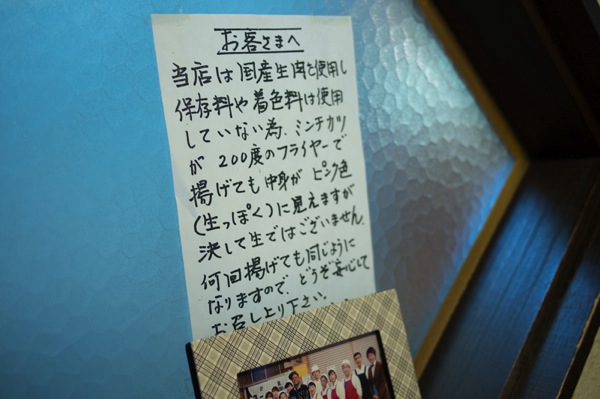 お客さまへ
当店は国産生肉を使用し
保存料や着色料は使用
していない為、ミンチカツ
が200度のフライヤーで
揚げても中身がピンク色
(生っぽく)に見えますが
決して生ではございません。
何回揚げても同じように
なりますので、どうぞ安心して
お召し上り下さい。